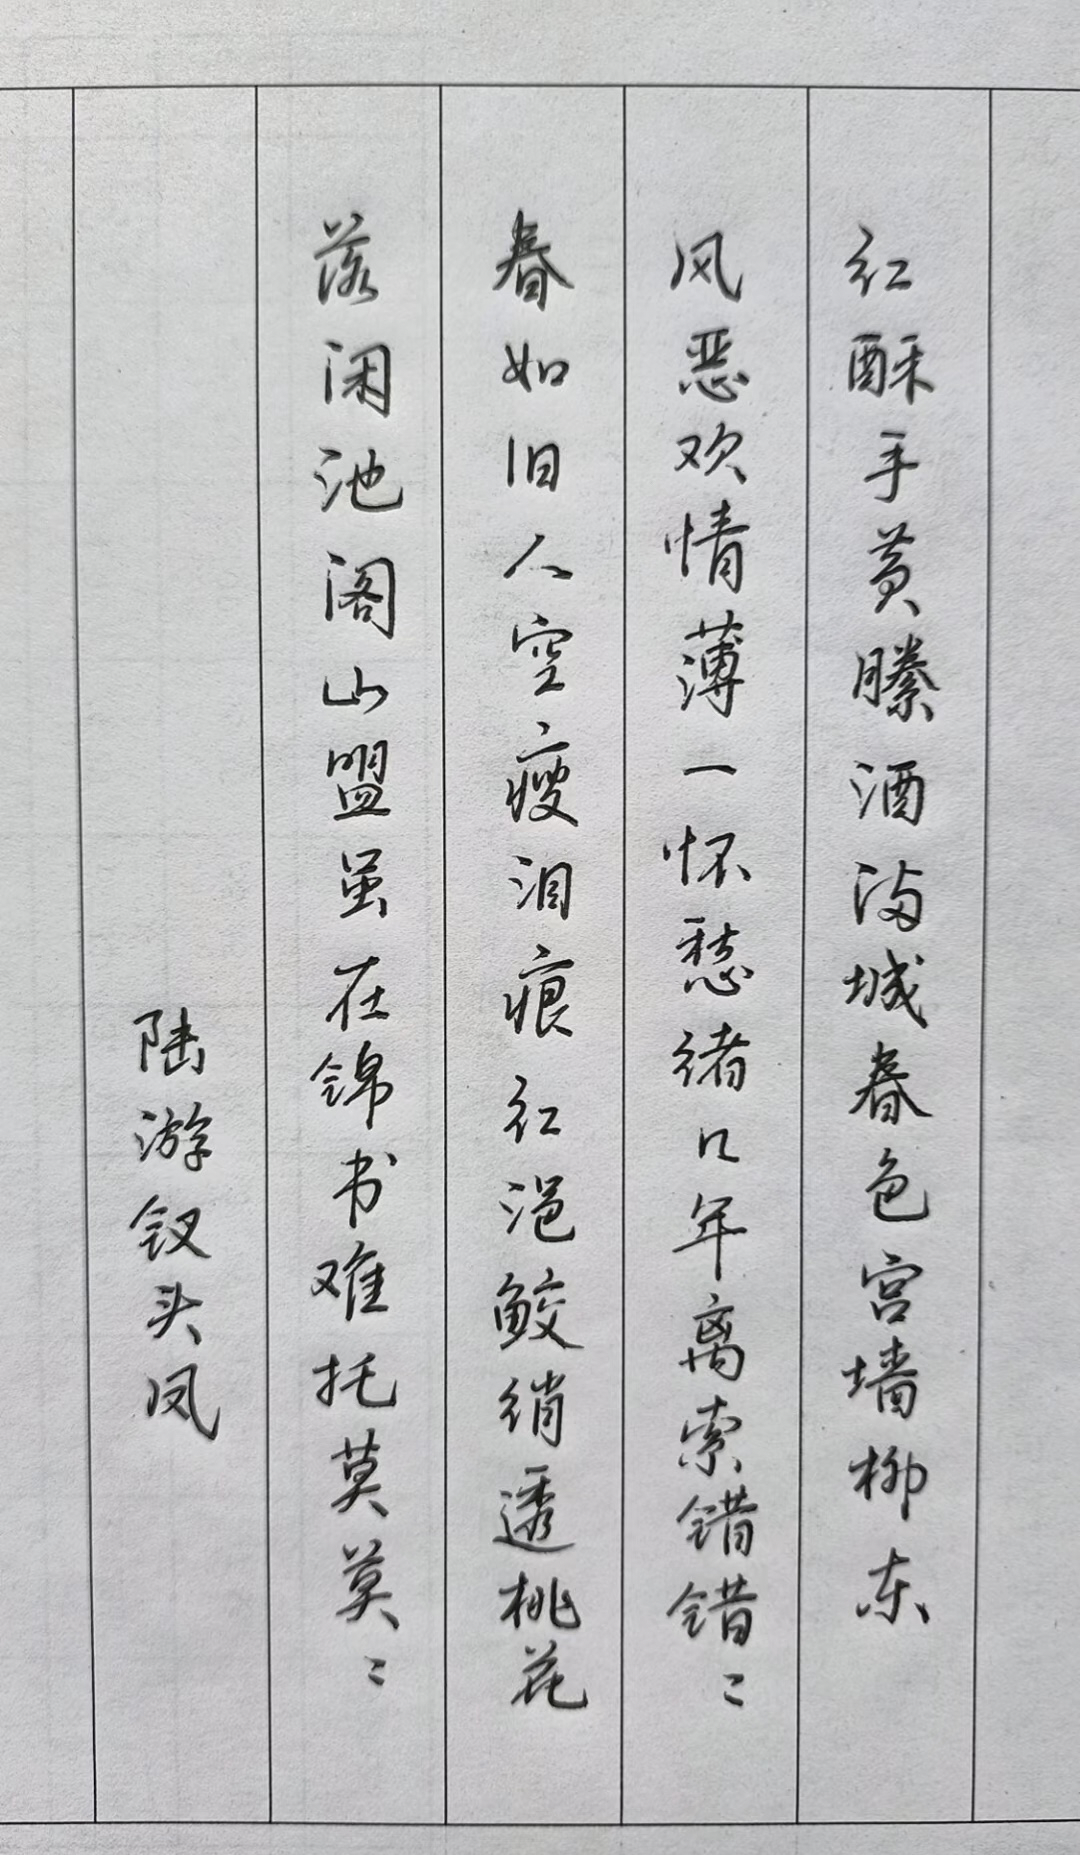 红酥手黄縢酒满城春色宫墙柳东
风恶欢情薄一怀愁绪几年离索错错〻
春如旧人空瘦泪痕红浥鲛绡透桃花
落闲池阁山盟虽在锦书难托莫莫〻
陆游钗头凤